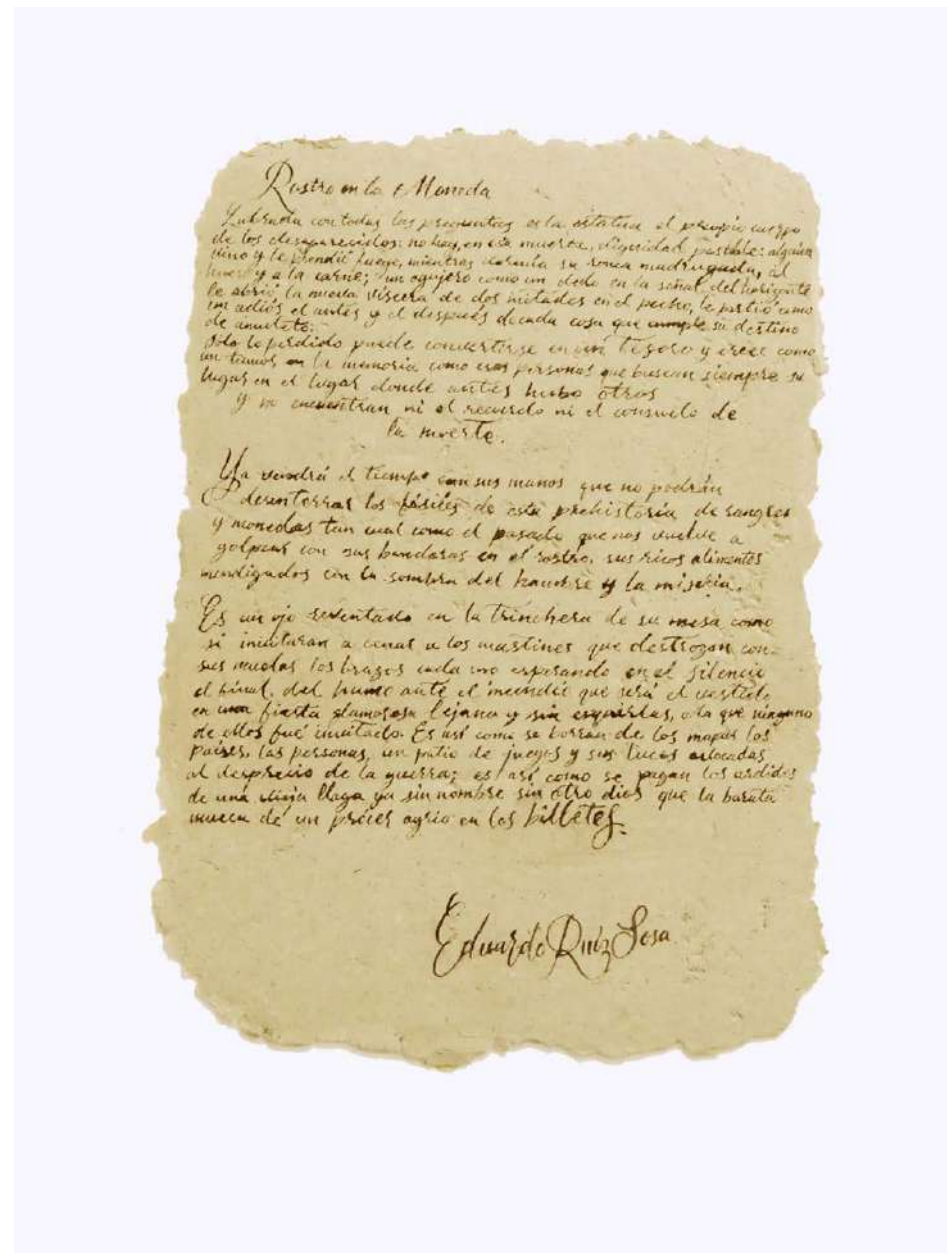 Rostro en la Moneda
Labrada con todas las preguntas es la estatua el propio cuerpo
de los desaparecidos: no hay, en esa muerte, dignidad posible: alguien
vino y le prendió fuego, mientras dormía su ronca madrugada, al
hueso y a la carne; un agujero como un dedo en la señal del horizonte
le abrió la nueva víscera de dos mitades en el pecho, le partió como
un adiós el antes y el después de cada cosa que cumple su destino
de amuleto:
Solo lo perdido puede convertirse en un tesoro y crece como
un tumor en la memoria como esas personas que buscan siempre su
lugar en el lugar donde antes hubo otros
y no encuentran ni el recuerdo ni el consuelo de
la muerte.
Ya vendrá el tiempo con sus manos que no podrán
desenterrar los fósiles de esta prehistoria de sangres
y monedas tan cual como el pasado que nos vuelve a
golpear con sus banderas en el rostro, sus ricos alimentos
mendigados con la sombra del hambre y la miseria.
Es un ojo reventado en la trinchera de su mesa como
si invitaran a cenar a los mastines que destrozan con
sus muelas los brazos cada uno esperando en el silencio
el final del humo ante el incendio que será el vestido
en una fiesta glamorosa lejana y sin esquirlas, a la que ninguno
de ellos fué invitado. Es así como se borran de los mapas los
países, las personas, un patio de juegos y sus luces
al desprecio de la guerra; es así como se pagan los ardides
de una vieja llaga ya sin nombre sin otro dios que la barata
mueca de un prócer agrio en los billetes.
Eduardo Ruiz Sosa